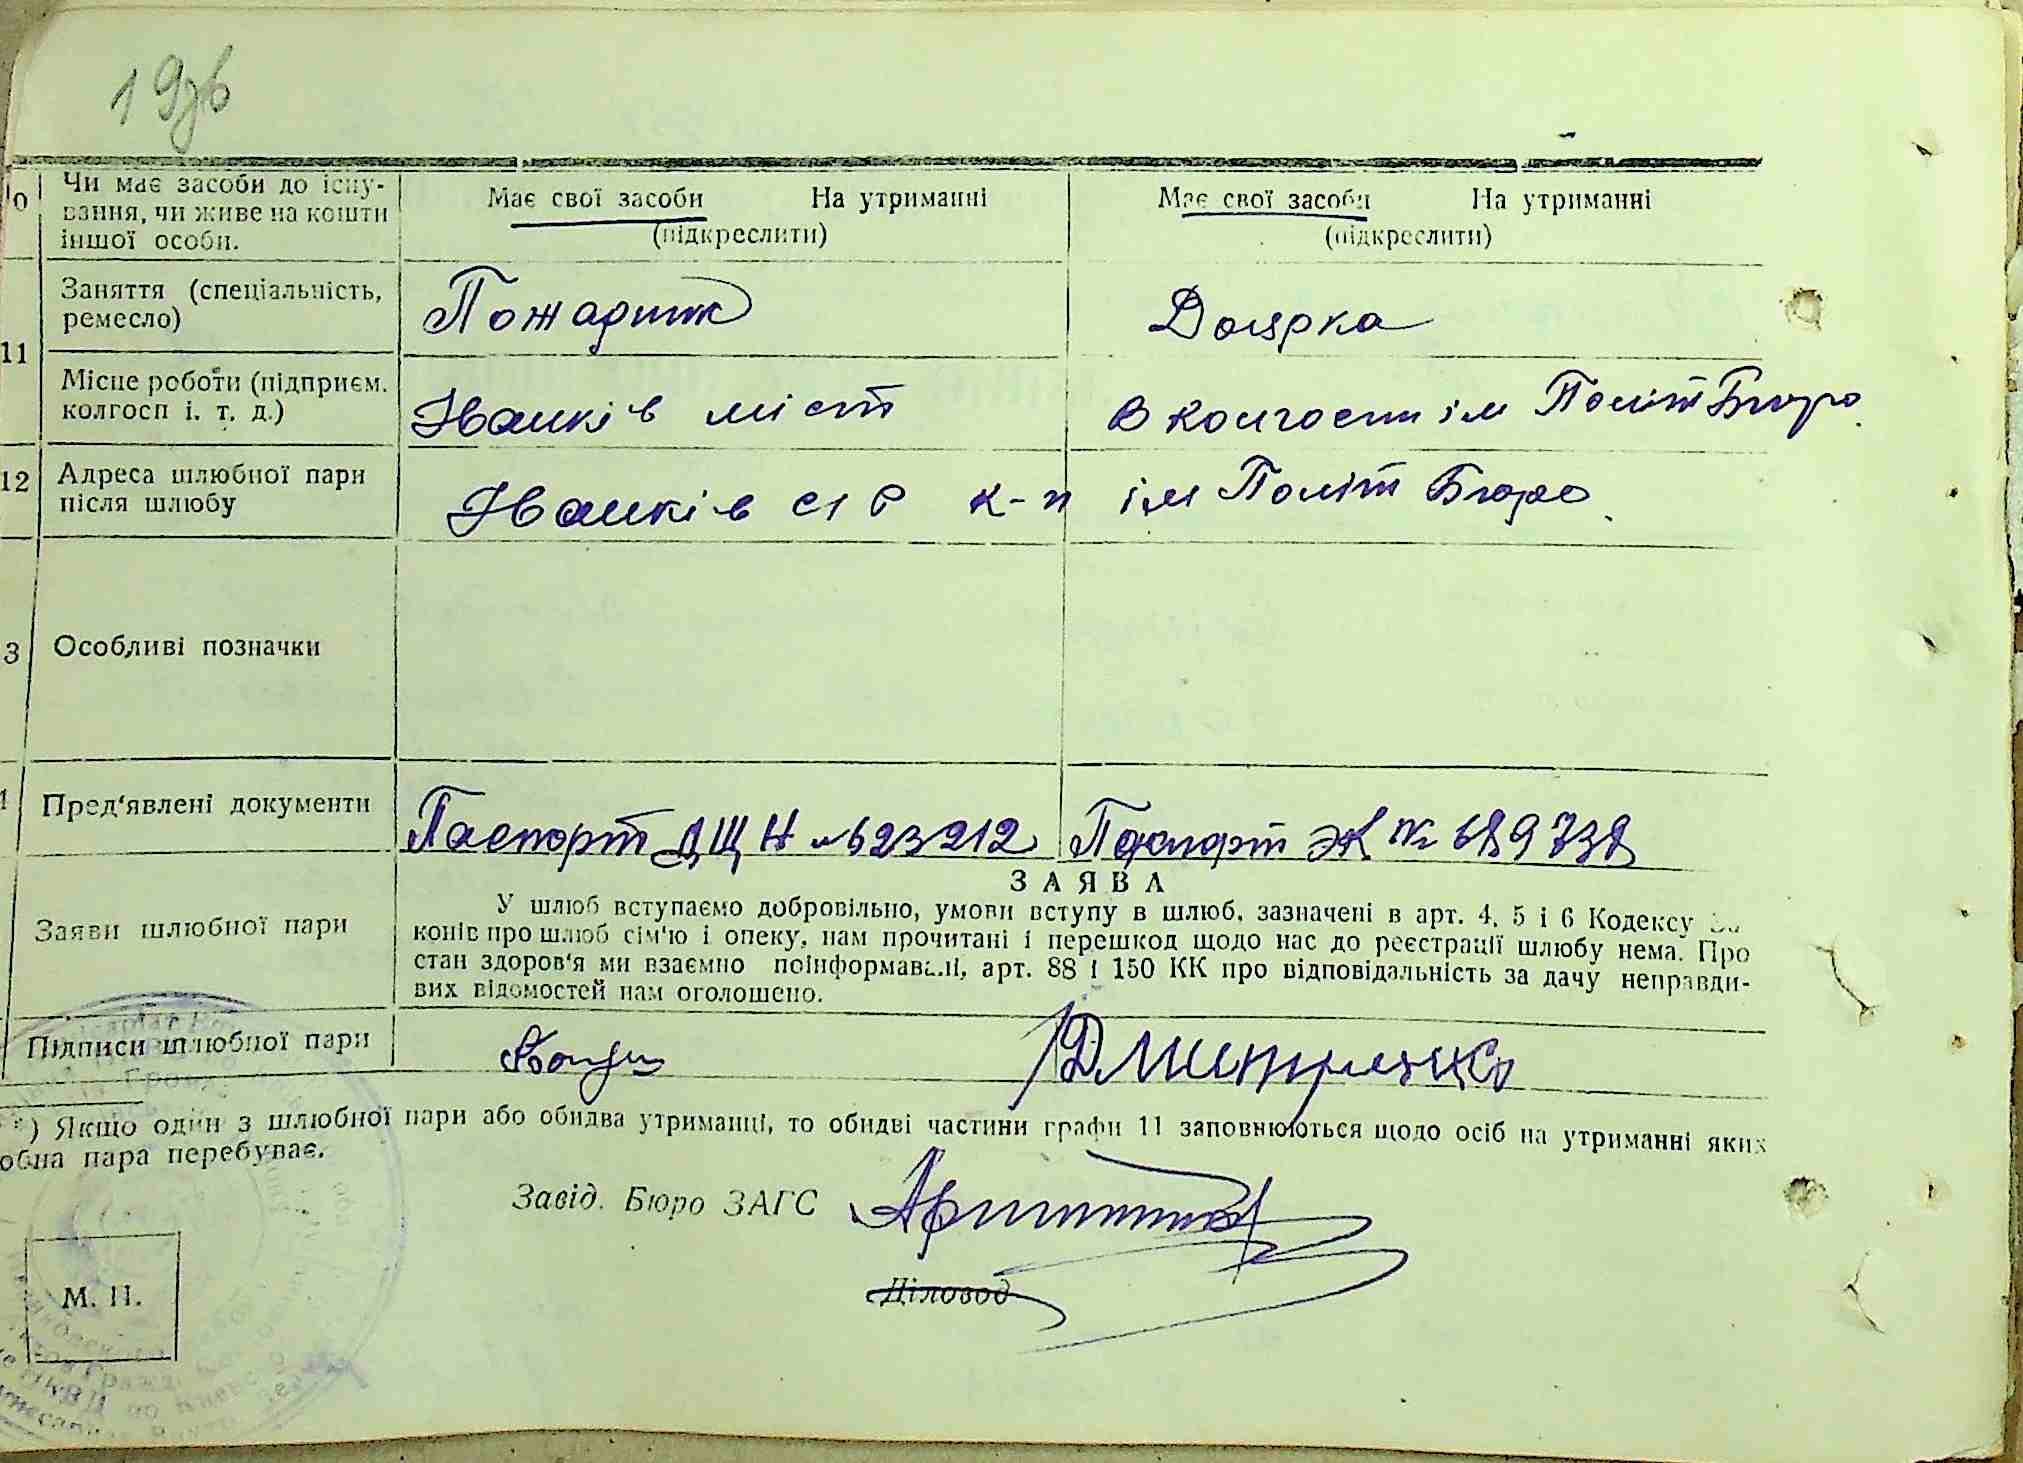 19зв
Чи має засоби до існу-
вання, чи живе на кошти
іншої особи.
Має свої засоби На утриманні
(підкреслити)
Має свої засоби На утриманні
(підкреслити)
11
Заняття (спеціальність,
ремесло)
Пожарник
Доярка
Місце роботи (підприєм.
колгосп і. т. д.)
Іванків міст
в колгоспи ім Політ Бюро.
12
Адреса шлюбної пари
після шлюбу
Іванків с/р к-п ім Політ Бюро.
3
Особливі позначки
Пред'явлені документи
Паспорт ДЩ № 623212
Паспорт ЭК № 689738
ЗАЯВА
Заяви шлюбної пари
У шлюб вступаємо добровільно, умови вступу в шлюб, зазначені в арт. 4, 5 і 6 Кодексу
конів про шлюб сім'ю і опеку, нам прочитані і перешкод щодо нас до реєстрації шлюбу нема. Про
стан здоров'я ми взаємно поінформовані, арт. 88 і 150 КК про відповідальність за дачу неправди-
вих відомостей нам оголошено.
Підписи шлюбної пари
*) Якщо один з шлюбної пари або обидва утриманці, то обидві частини графи 11 заповнюються щодо осіб на утриманні яких
обна пара перебуває.
Завід. Бюро ЗАГС
Діловод
М. П.